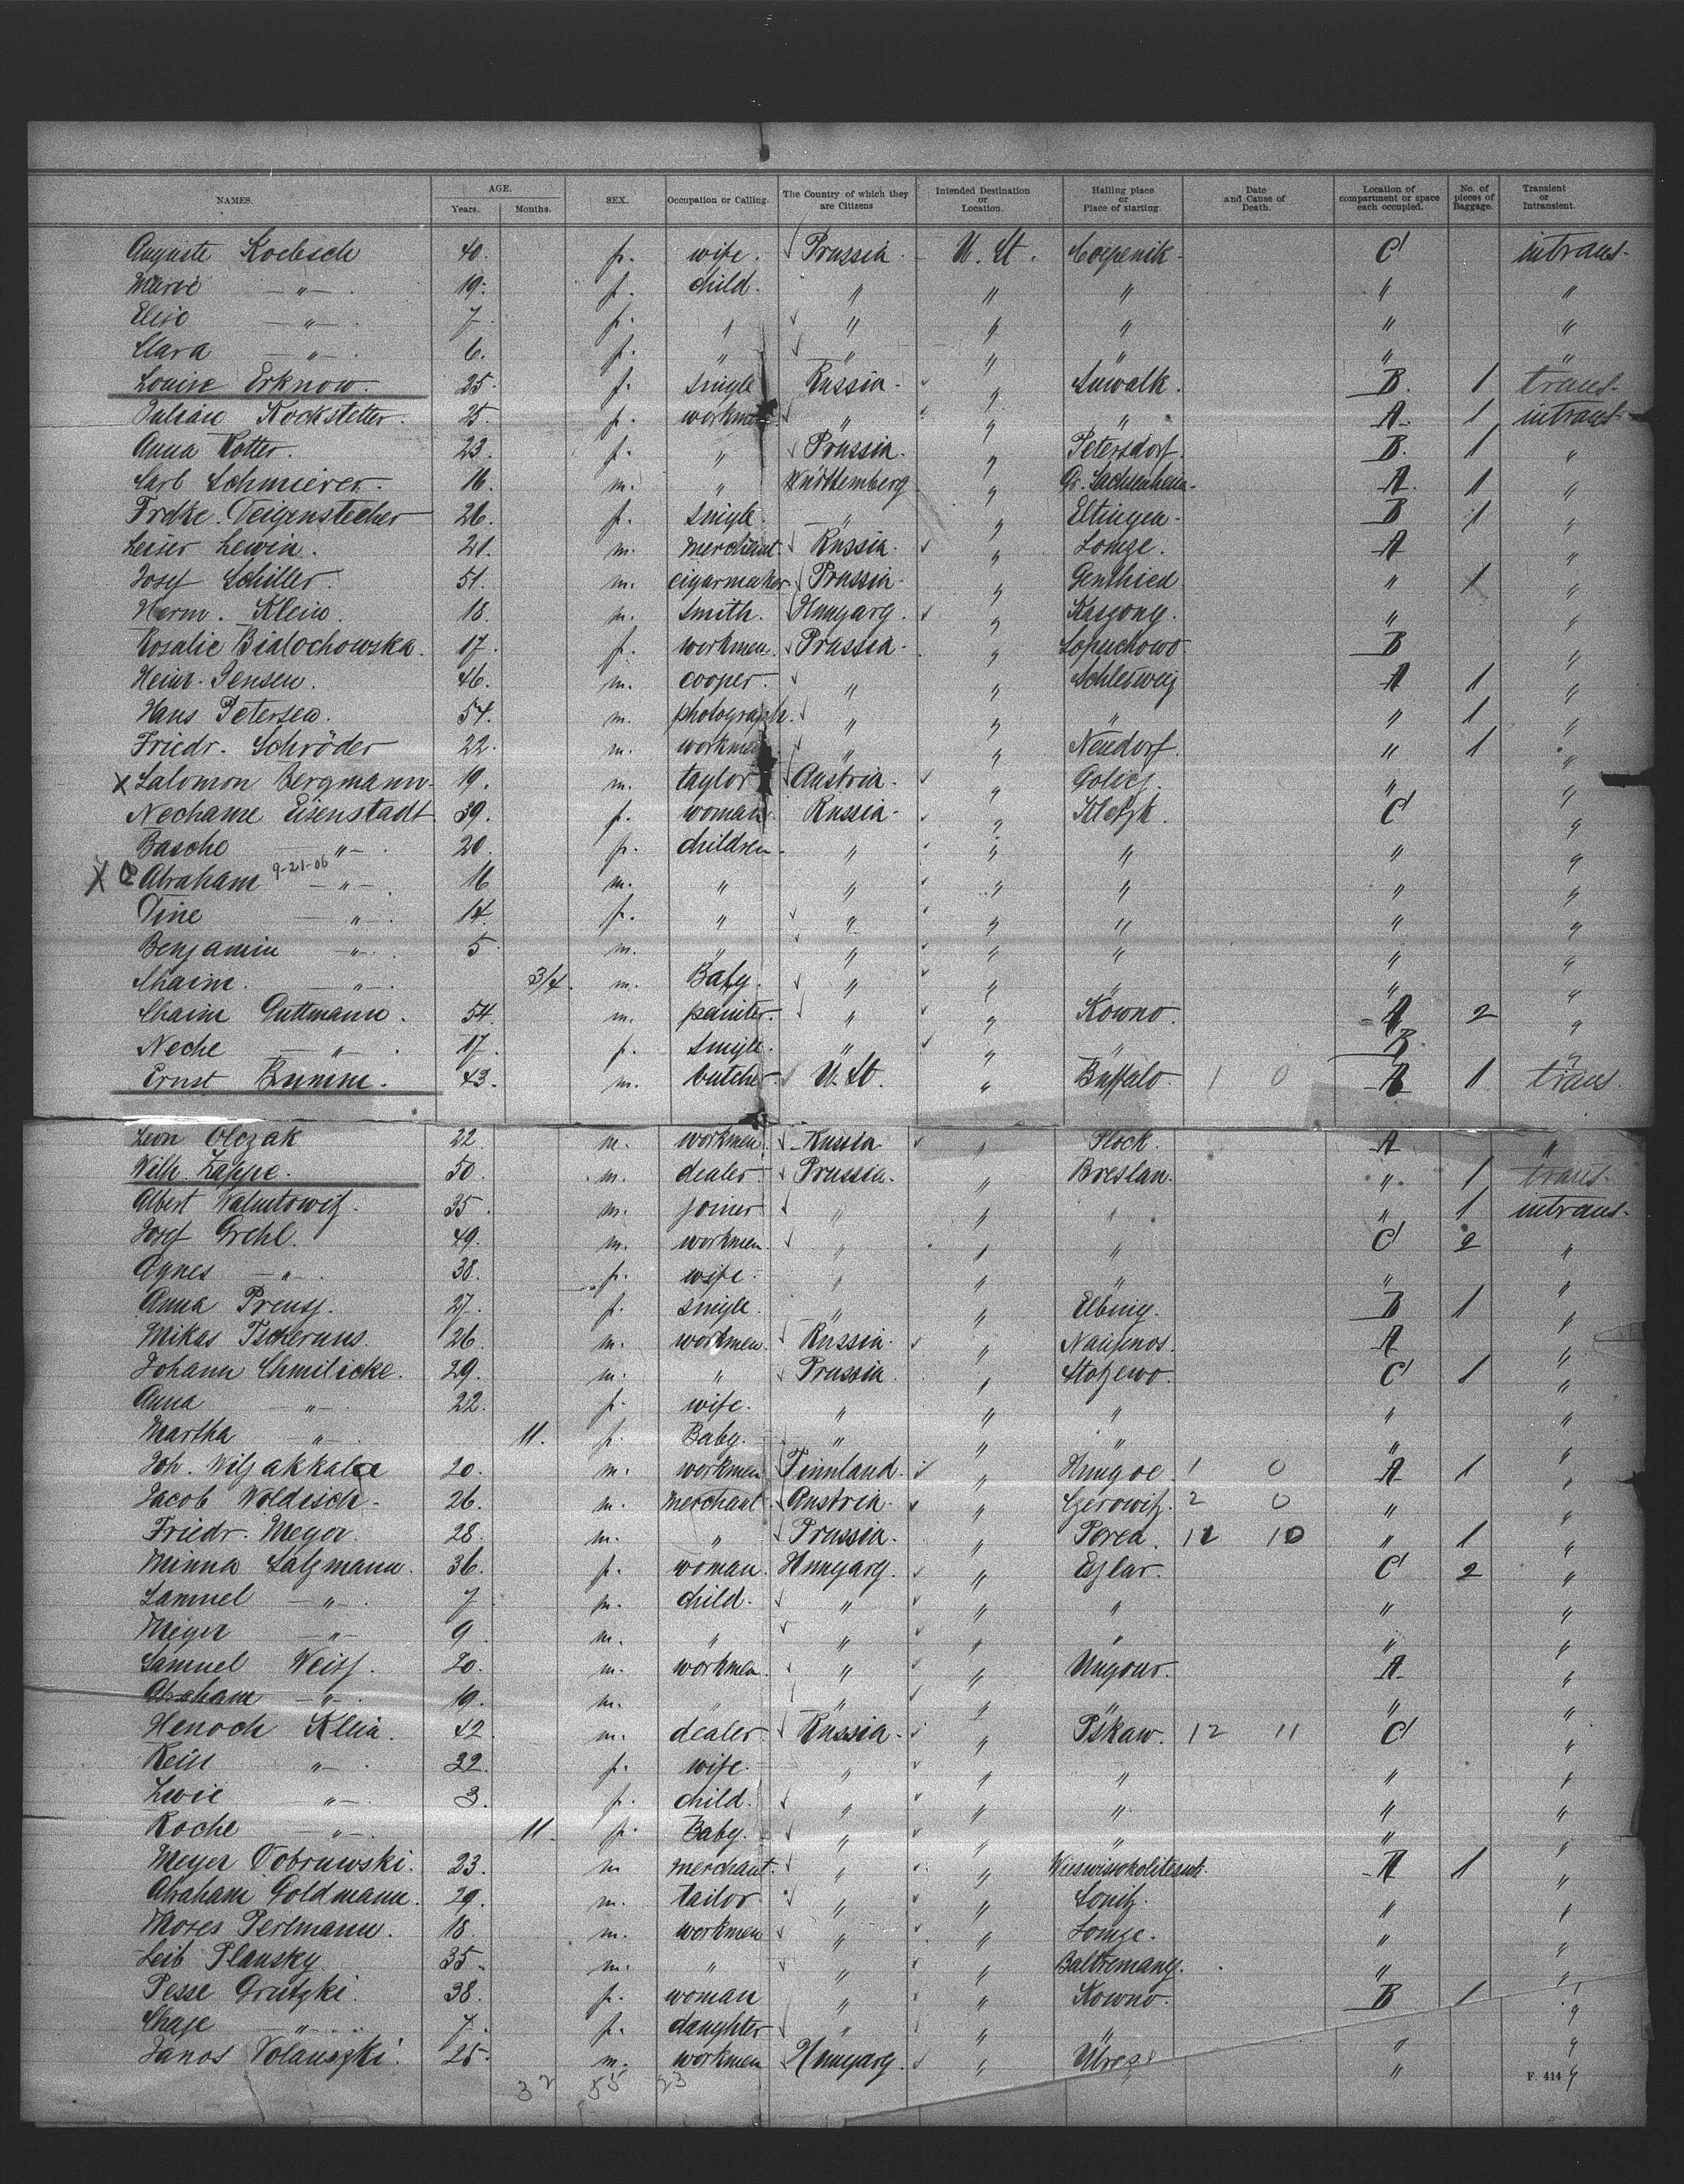 NAMES. AGE. Years. Months. SEX. Occupation or Calling. The Country of which they are Citizens Intended Destination or Location. Hailing place or Place of starting. Date and Cause of Death. Location of compartment or space each occupied. No. of pieces of Baggage. Transient or Intransient.
Auguste Koebsch 40. f. wife. Prussia. U. St. Coepenik C intrans.
" 19. f. child. " " " " "
Elise " 7. f. " " " " " "
Clara " 6. f. " " " " " "
Louise Erknow. 25. f. single Russia. " Suwalk. B. 1 trans.
Julian Kockstetter. 25. f. workmen " " " A. 1 intrans.
Anna Rotter. 23. f. " Prussia. " Petersdorf. B. 1 "
Carl Schmierer. 16. m. " Württemberg " Gr. Sachsenheim A. 1 "
Fredke. Deigenstecher 26. f. single. " " Eltingen. B 1 "
Leiser Lewin. 21. m. merchant. Russia. " Lomze. A "
Josef Schiller. 51. m. cigarmaker Prussia. " Genthied " 1 "
Herm. Klein. 18. m. smith. Hungary. " Kaszony. " "
Rosalie Bialochowska. 17. f. workmen. Prussia. " Lopuchowo B "
Heinr. Jensen. 46. m. cooper. " " Schleswig A 1 "
Hans Petersen. 54. m. photograph. " " " " 1 "
Friedr. Schröder 22. m. workmen " " Neudorf. " 1 "
X Salomon Bergmann. 19. m. taylor Austria. " Golicz. " "
Nechame Eisenstadt 39. f. woman. Russia. " Kletzk. C "
Basche " 20. f. children. " " " " "
X Abraham 9-21-06 " 16 m. " " " " " "
Dine " 14. f. " " " " " "
Benjamin " 5 m. " " " " " "
Chaim. " 3/4. m. Baby. " " " " "
Chaim Guttmann. 54. m. painter. " " Kowno. A 2 "
Neche " 17. f. single. " " " B. "
Ernst Bumm. 43. m. butcher. U. St. " Buffalo. 1 0 A 1 trans.
Leon Olczak 22. m. workmen. Russia " Plock. A "
Wilh. Zappe. 50. m. dealer. Prussia. " Breslau. " 1 trans.
Albert Walentowitz. 35. m. joiner " " " " 1 intrans.
Josef Grehl. 49. m. workmen. " " " C 2 "
Agnes " 38. f. wife. " " " " "
Anna Preuss. 27. f. single. " " Elbing. B 1 "
Mikas Tschernus. 26. m. workmen. Russia. " A "
Johann Chmilicke. 29. m. " Prussia. " Stotzewo. C 1 "
Anna " 22. f. wife. " " " " "
Martha " 11. f. Baby. " " " " "
Joh. Wiljakkala 20. m. workmen Finnland. " Hungoe. 1 0 A 1 "
Jacob Woldisch. 26. m. merchant. Austria. " Czerowitz. 2 0 " "
Friedr. Meyer. 28. m. " Prussia. " Porea. 12 10 " 1 "
Minna Salzmann. 36. f. woman. Hungary. " Eszlar. C 2 "
Samuel " 7 m. child. " " " " "
Meyer " 9 m. " " " " " "
Samuel Weiss. 20. m. workmen. " " Ungour. A "
Abraham " 19. m. " " " " " "
Henoch Klein. 42. m. dealer Russia. " Pskaw. 12 11 C "
" 32. f. wife. " " " " "
" 3. f. child. " " " " "
Roche " 11. f. Baby. " " " " "
Meyer Dobruwski. 23. m merchant. " " A 1 "
Abraham Goldmann. 29. m. tailor " " " "
Moses Perlmann. 18. m. workmen " " Lomze. " "
Leib Plansky. 35. m. " " " Baltremany. " "
Pesse Grutzki. 38. f. woman " " Kowno. B 1 "
Chaje " 7. f. daughter " " " " "
Janos Volauszki. 25. m. workmen Hungary. " " "
32 55 23
F. 414